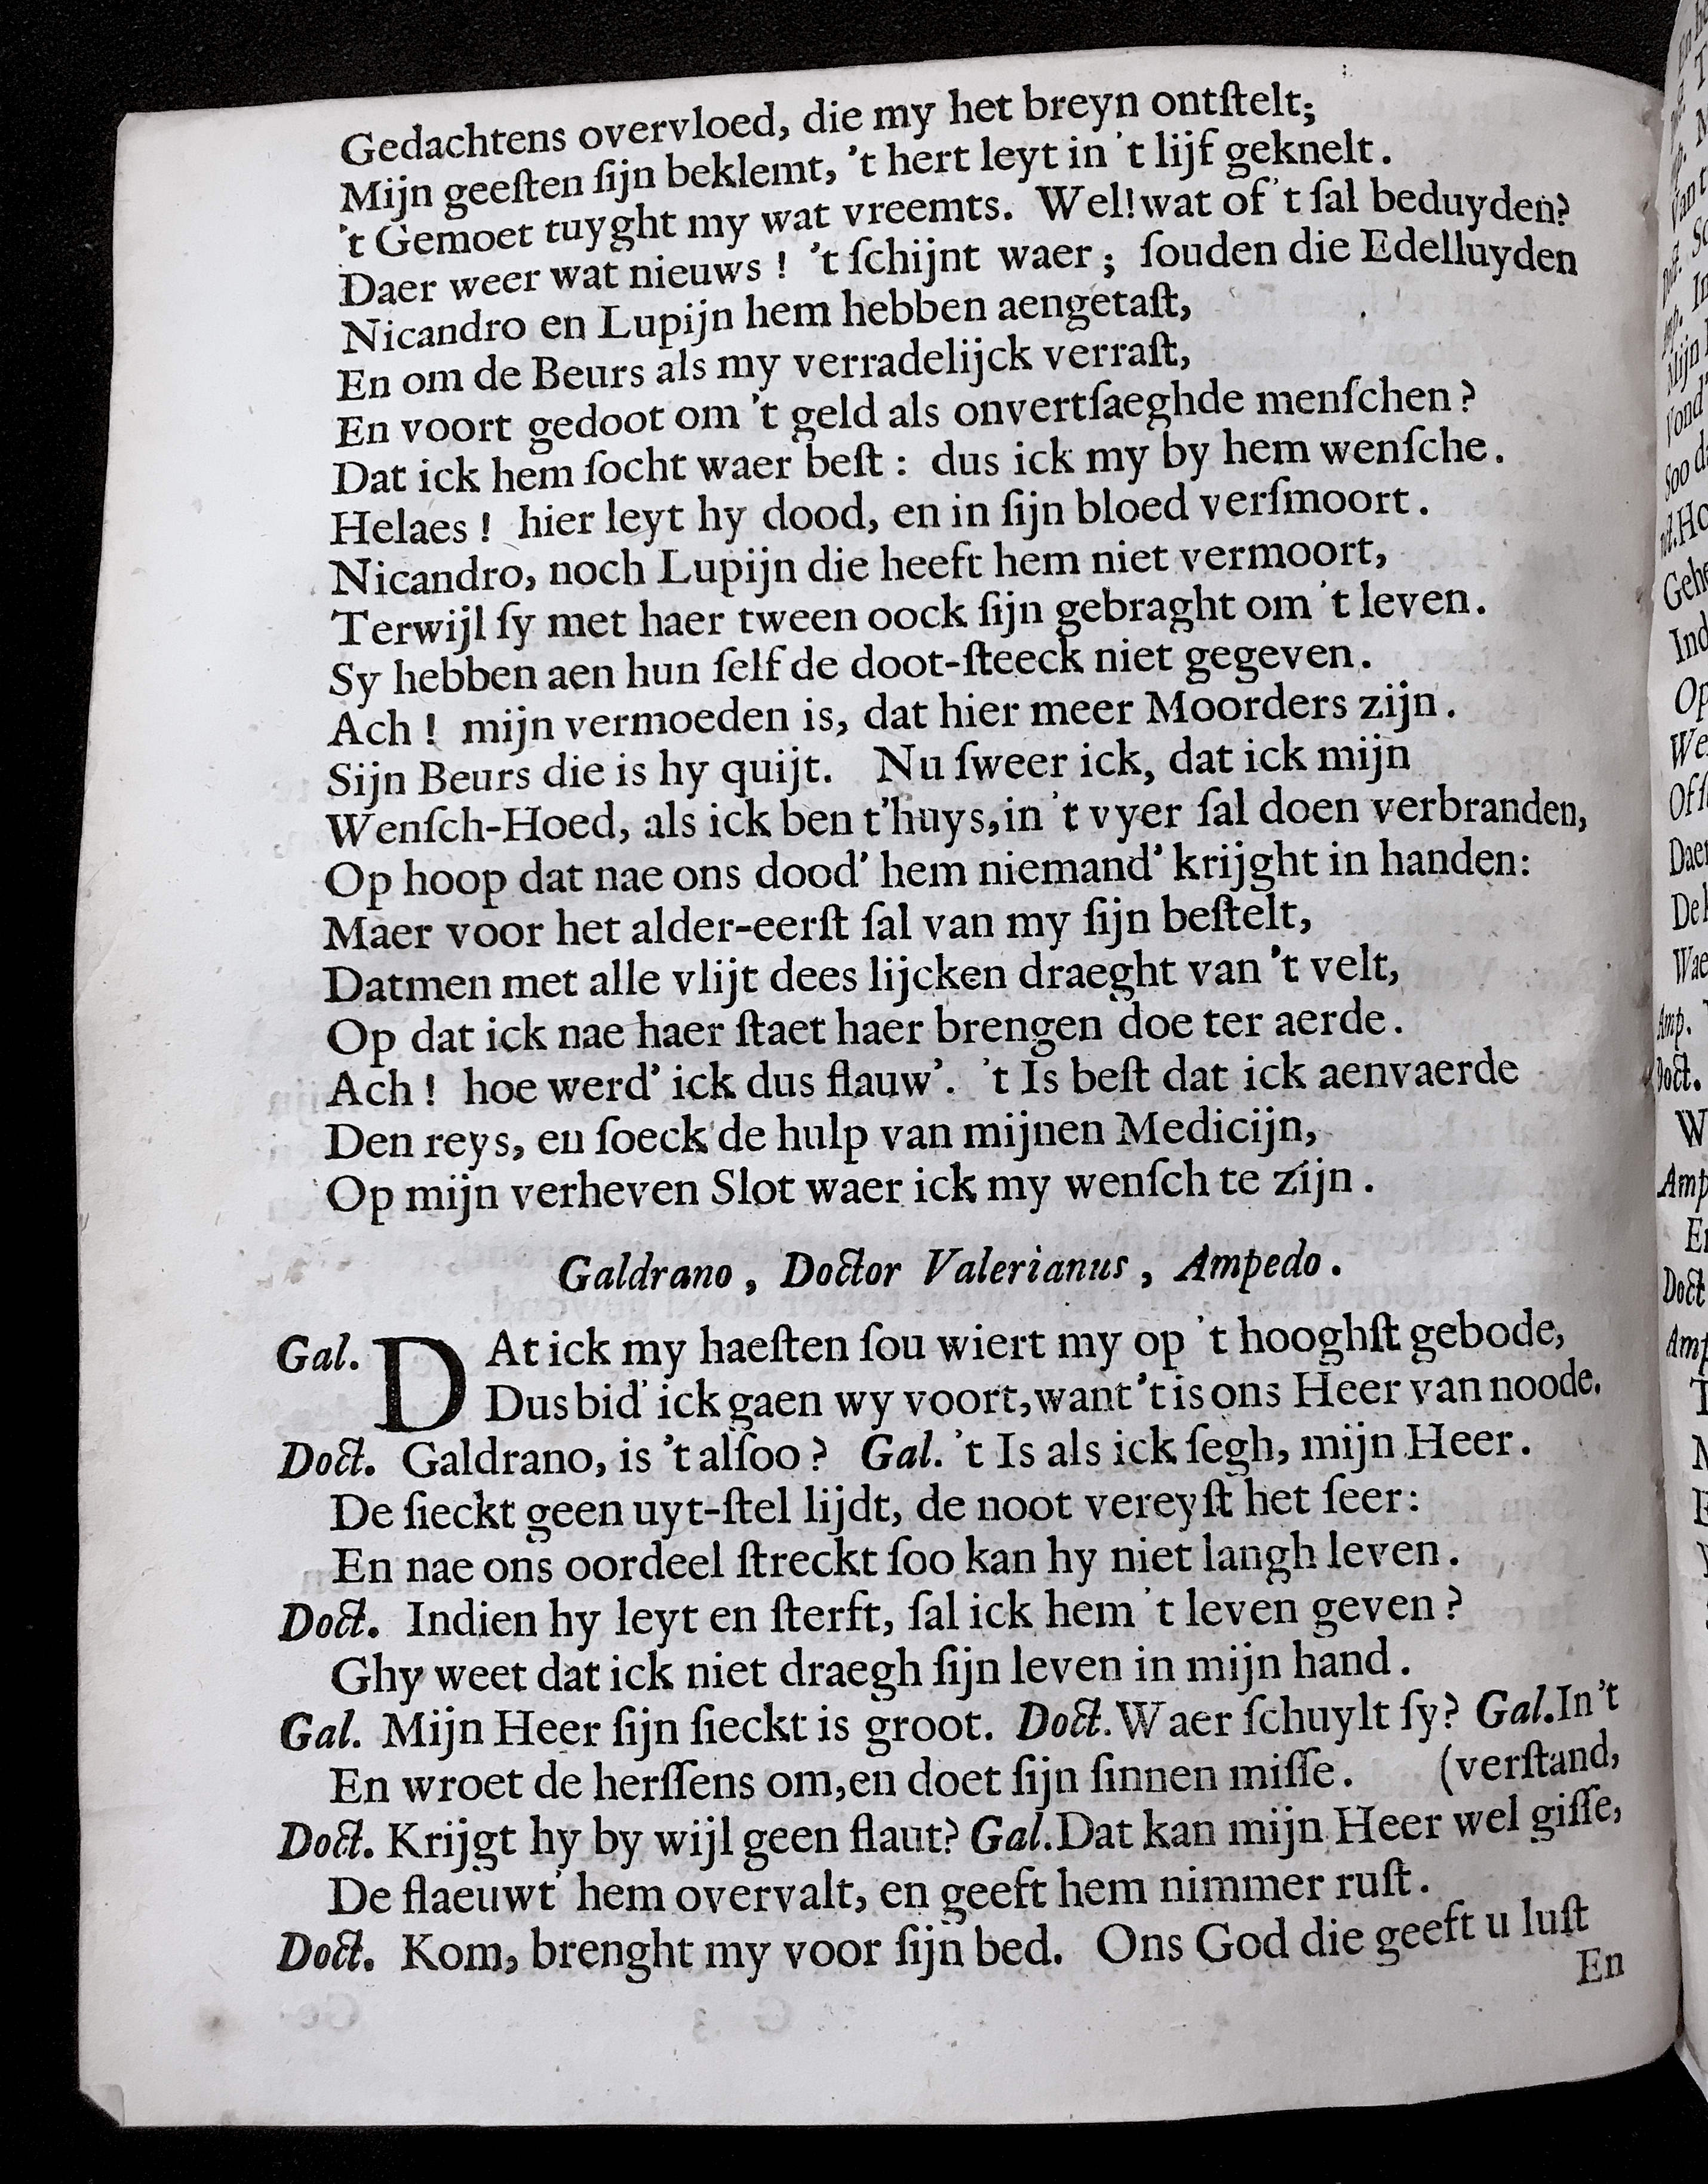 Gedachtens overvloed, die my het breyn ontſtelt;
Mijn geeſten ſijn beklemt, 't hert leyt in 't lijf geknelt.
't Gemoet tuyght my wat vreemts. Wel! wat of 't ſal beduyden?
Daer weer wat nieuws! 't ſchijnt waer; ſouden die Edelluyden
Nicandro en Lupijn hem hebben aengetaſt,
En om de Beurs als my verradelijck verraſt,
En voort gedoot om 't geld als onvertſaeghde menſchen?
Dat ick hem ſocht waer beſt: dus ick my by hem wenſche.
Helaes! hier leyt hy dood, en in ſijn bloed verſmoort.
Nicandro, noch Lupijn die heeft hem niet vermoort,
Terwijl ſy met haer tween oock ſijn gebraght om 't leven.
Sy hebben aen hun ſelf de doot-ſteeck niet gegeven.
Ach! mijn vermoeden is, dat hier meer Moorders zijn.
Sijn Beurs die is hy quijt. Nu ſweer ick, dat ick mijn
Wenſch-Hoed, als ick ben t'huys, in 't vyer ſal doen verbranden,
Op hoop dat nae ons dood' hem niemand' krijght in handen:
Maer voor het alder-eerſt ſal van my ſijn beſtelt,
Datmen met alle vlijt dees lijcken draeght van 't velt,
Op dat ick nae haer ſtaet haer brengen doe ter aerde.
Ach! hoe werd' ick dus flauw'. 't Is beſt dat ick aenvaerde
Den reys, en ſoeck de hulp van mijnen Medicijn,
Op mijn verheven Slot waer ick my wenſch te zijn.
Galdrano, Doctor Valerianus, Ampedo.
Gal. DAt ick my haeſten ſou wiert my op 't hooghſt gebode,
Dus bid' ick gaen wy voort, want 't is ons Heer van noode.
Doct. Galdrano, is 't alſoo? Gal. 't Is als ick ſegh, mijn Heer.
De ſieckt geen uyt-ſtel lijdt, de noot vereyſt het ſeer:
En nae ons oordeel ſtreckt ſoo kan hy niet langh leven.
Doct. Indien hy leyt en ſterft, ſal ick hem 't leven geven?
Ghy weet dat ick niet draegh ſijn leven in mijn hand.
Gal. Mijn Heer ſijn ſieckt is groot. Doct. Waer ſchuylt ſy? Gal. In 't
En wroet de herſſens om, en doet ſijn ſinnen miſſe. (verſtand,
Doct. Krijgt hy by wijl geen flaut? Gal. Dat kan mijn Heer wel giſſe,
De flaeuwt' hem overvalt, en geeft hem nimmer ruſt.
Doct. Kom, brenght my voor ſijn bed. Ons God die geeft u luſt
En